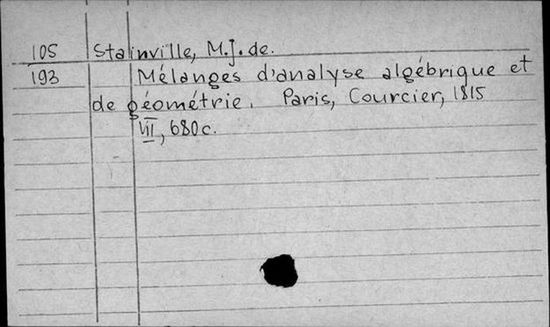 105 Stainville, M.J. de.
193 Mélanges d'analyse algébrique et
de géométrie. Paris, Courcier, 1815
VII, 680 c.